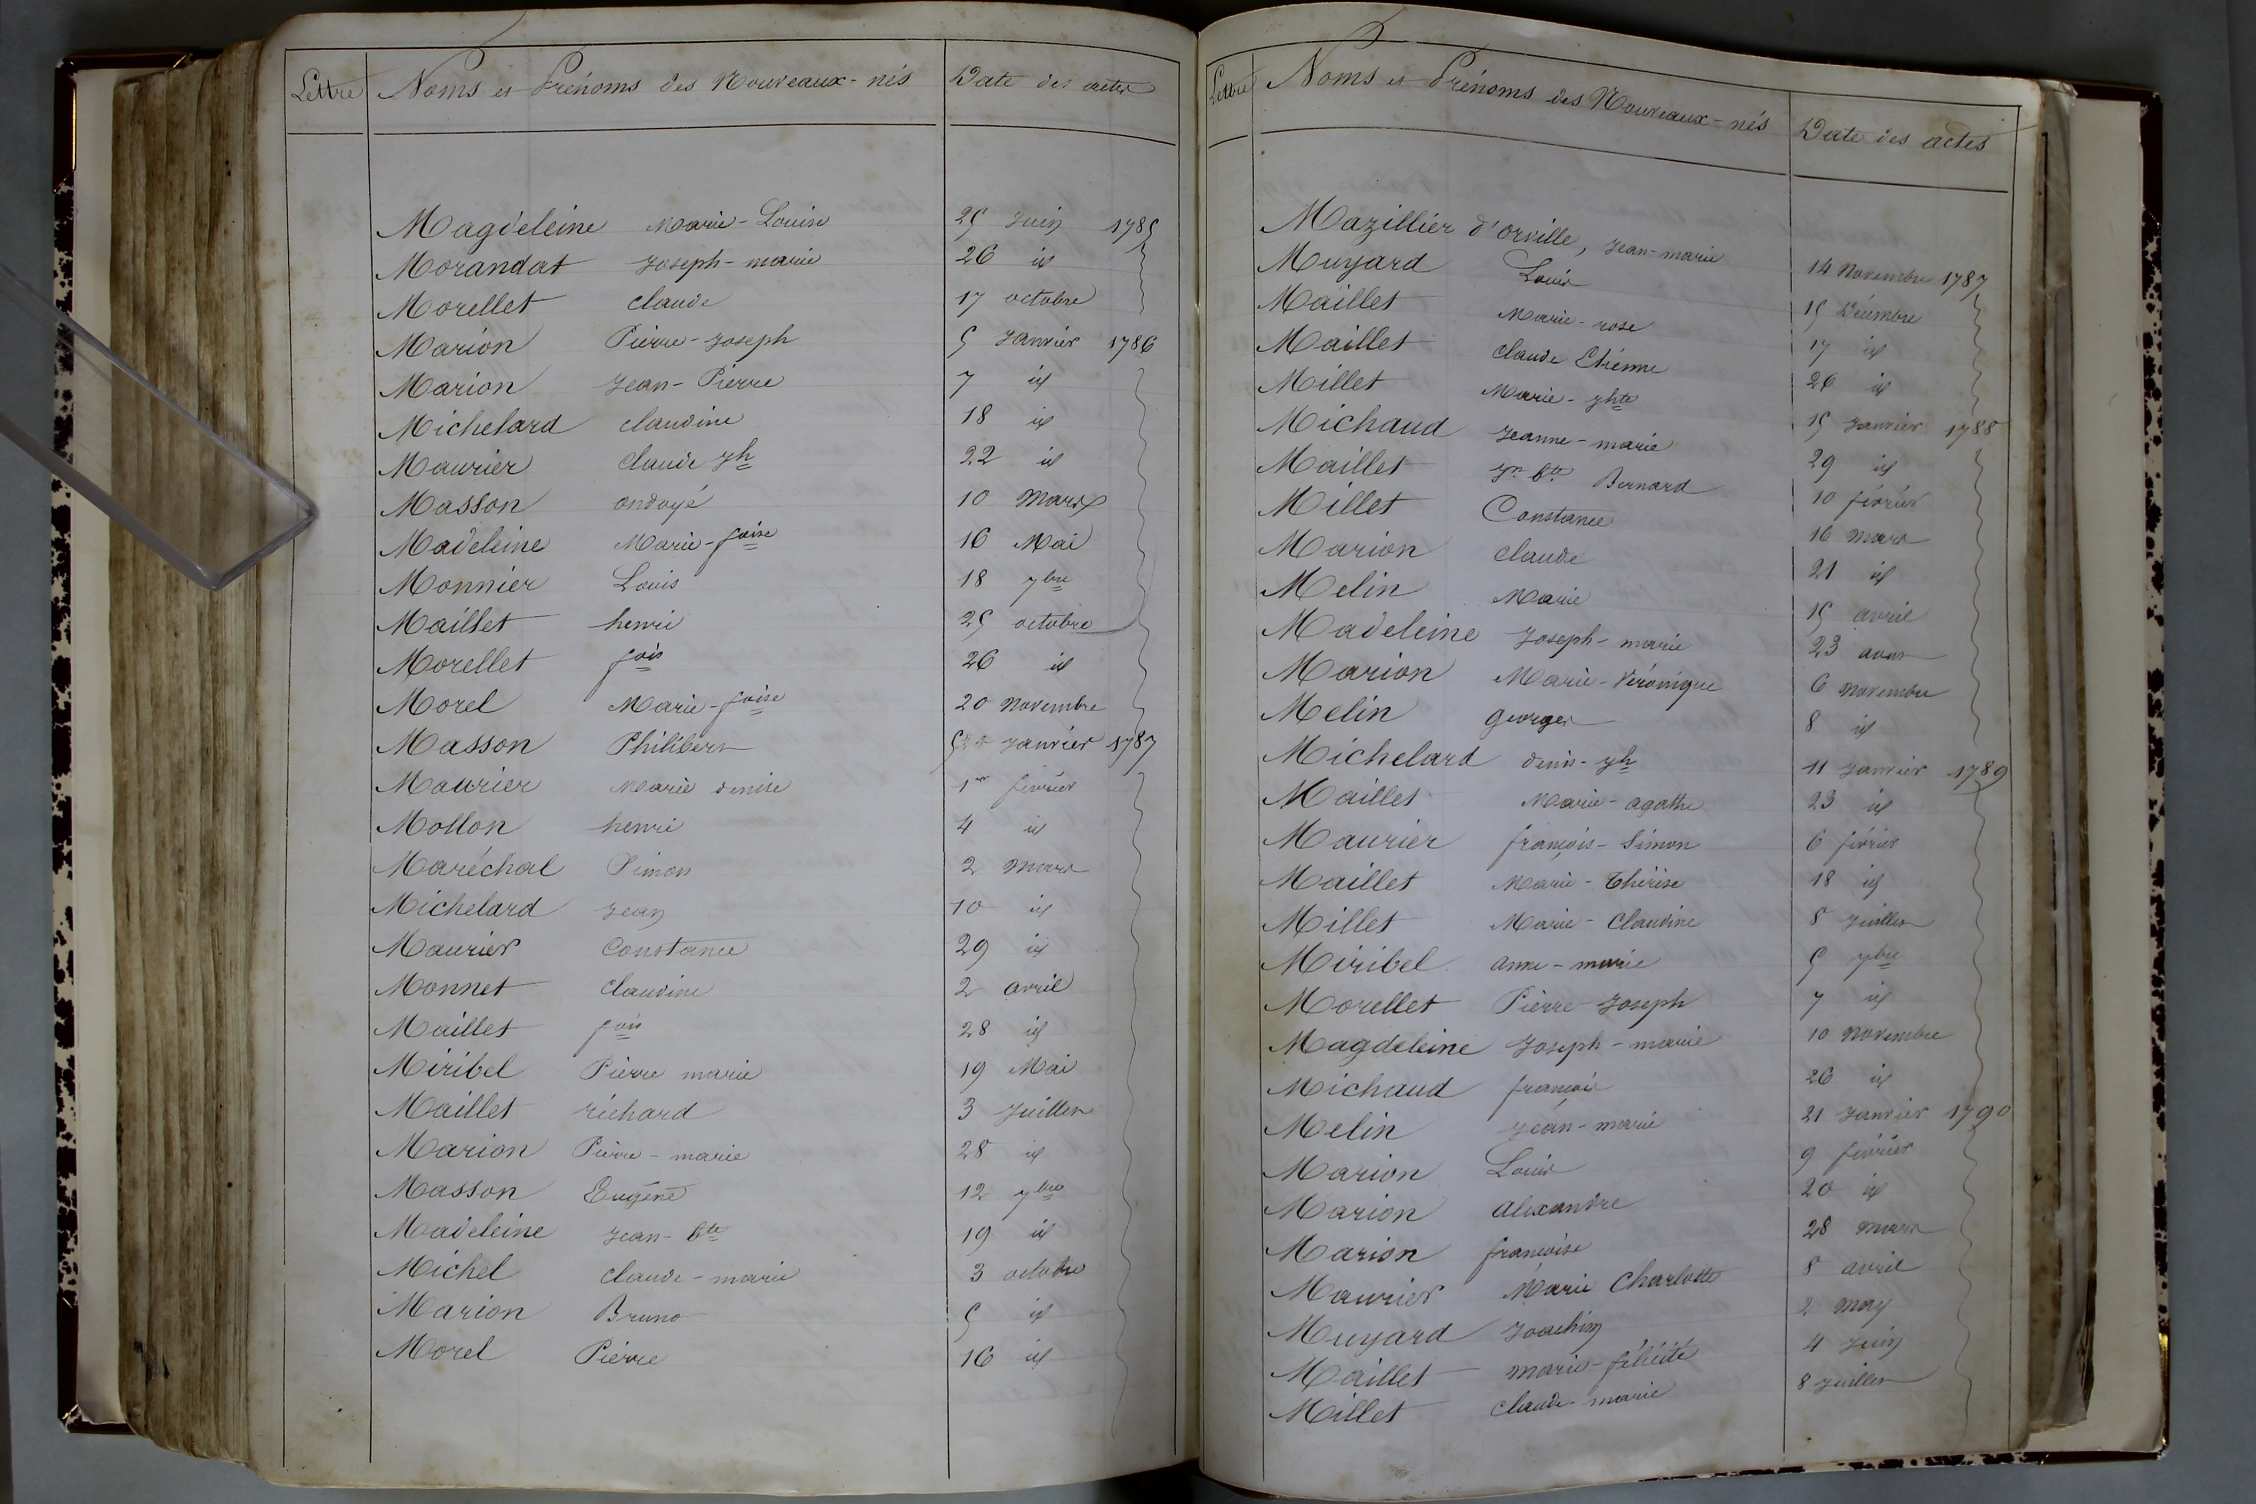 Lettre Noms et Prénoms des Nouveaux-nés Date des actes
Magdeleine Marie-Louise 25 Juin 1785
Morandat Joseph-marie 26 id
Morellet claude 17 octobre
Marion Pierre-Joseph 5 Janvier 1786
Marion Jean-Pierre 7 id
Michelard claudine 18 id
Maurier claude Jh 22 id
Masson ondoyé 10 Mars
Madeleine Marie-foise 16 Mai
Monnier Louis 18 7bre
Maillet henri 25 octobre
Morellet fois 26 id
Morel Marie-foise 20 Novembre
Masson Philibert Janvier 1787
Maurier Marie denise 1er février
Mollon henri 4 id
Maréchal Simon 2 Mars
Michelard Jean 10 id
Maurier Constance 29 id
Monnet Claudine 2 avril
Maillet fois 28 id
Miribel Pierre marie 19 Mai
Maillet richard 3 Juillet
Marion Pierre-marie 28 id
Masson Eugéne 12 7bre
Madeleine Jean-bte 19 id
Michel claude-marie 3 octobre
Marion Bruno 5 id
Morel Pierre 16 id
Lettre Noms et Prénoms des Nouveaux-nés Date des actes
Mazillier d'orville, Jean-marie 14 Novembre 1787
Muyard Louis 15 Décembre
Maillet Marie-rose 17 id
Maillet claude Etienne 26 id
Millet Marie-Jhte 15 Janvier 1788
Michaud Jeanne-marie 29 id
Maillet Jn bte Bernard 10 février
Millet Constance 16 mars
Marion claude 21 id
Melin Marie 15 avril
Madeleine Joseph-marie 23 aout
Marion Marie-Véronique 6 Novembre
Melin georges 8 id
Michelard denis-Jh 11 Janvier 1789
Maillet Marie-agathe 23 id
Maurier françois-Simon 6 février
Maillet Marie-Thérèse 18 id
Millet Marie-Claudine 8 Juillet
Miribel anne-marie 5 7bre
Morellet Pierre-Joseph 7 id
Magdeleine Joseph-marie 10 Novembre
Michaud françois 26 id
Melin Jean-marie 21 Janvier 1790
Marion Louis 9 février
Marion alexandre 20 id
Marion françoise 28 mars
Maurier Marie Charlotte 8 avril
Muyard Joachim 2 May
Maillet marie-félicité 4 Juin
Millet claude-marie 8 Juillet